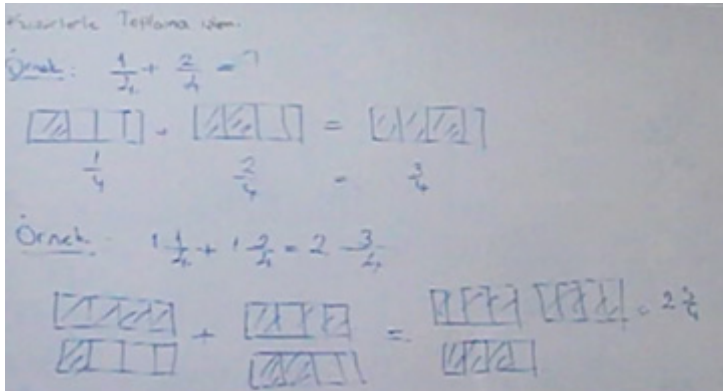 Kesirlerle Toplama işlemi
Örnek: 1/4 + 2/4 = ?
1/4 2/4 = 3/4
Örnek 1 1/4 + 1 2/4 = 2 3/4
+ = = 2 3/4